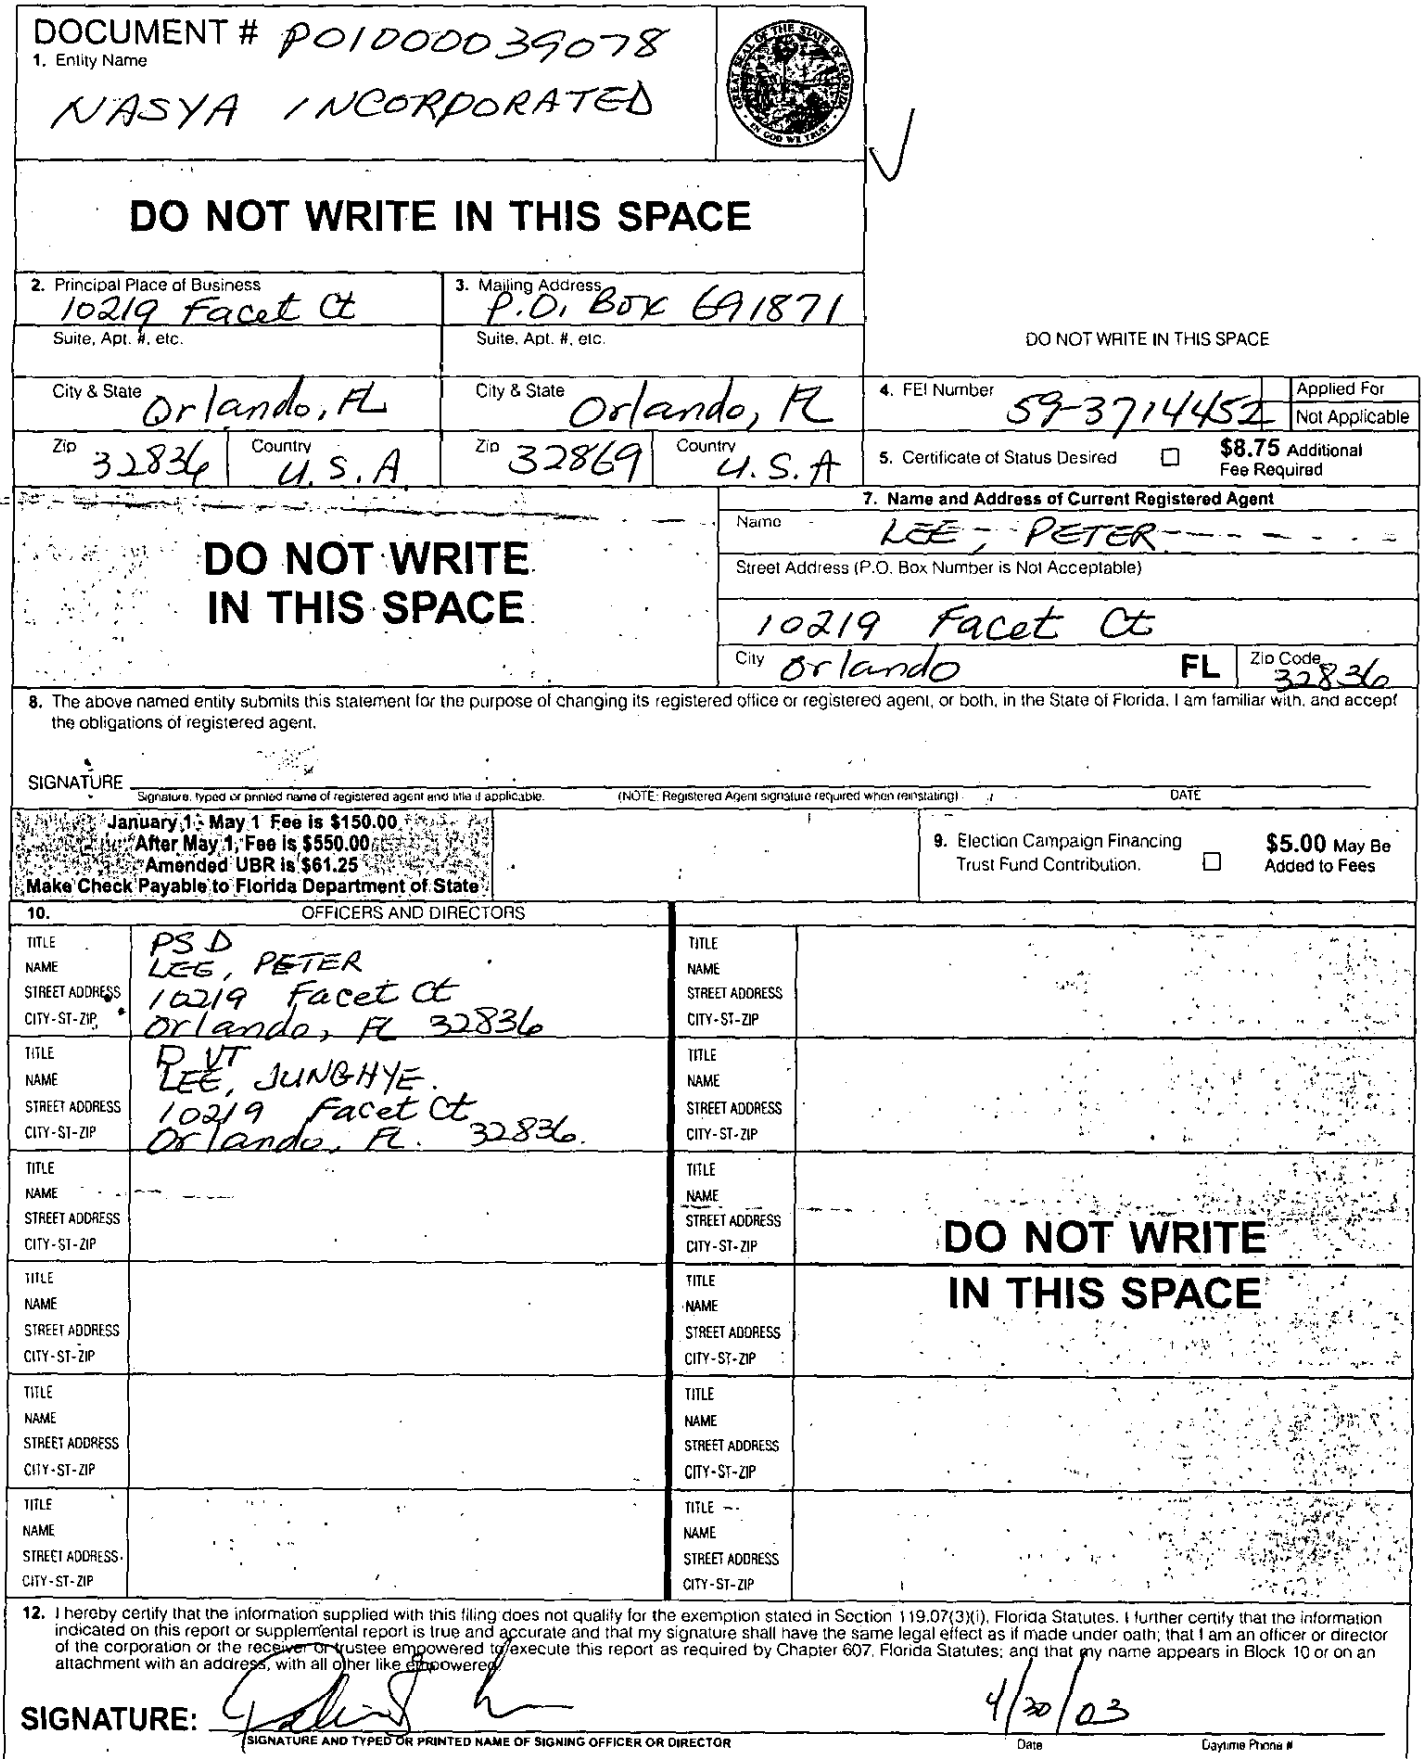 DOCUMENT # P01000039078
1. Entity Name
NASYA INCORPORATED
GREAT SEAL OF THE STATE OF FLORIDA
IN GOD WE TRUST
DO NOT WRITE IN THIS SPACE
2. Principal Place of Business
10219 Facet Ct
3. Mailing Address
P.O. Box 691871
Suite, Apt. #, etc.
Suite, Apt. #, etc.
DO NOT WRITE IN THIS SPACE
City & State Orlando, FL
City & State Orlando, FL
4. FEI Number 59-3714452
Applied For
Not Applicable
Zip 32836
Country U.S.A.
Zip 32869
Country U.S.A
5. Certificate of Status Desired
$8.75 Additional
Fee Required
7. Name and Address of Current Registered Agent
Name LEE, PETER
DO NOT WRITE
IN THIS SPACE
Street Address (P.O. Box Number is Not Acceptable)
10219 Facet Ct
City Orlando FL
Zip Code 32836
8. The above named entity submits this statement for the purpose of changing its registered office or registered agent, or both, in the State of Florida. I am familiar with, and accept
the obligations of registered agent.
SIGNATURE
Signature, typed or printed name of registered agent and title if applicable.
(NOTE: Registered Agent signature required when reinstating)
DATE
January 1 - May 1 Fee is $150.00
After May 1, Fee is $550.00
Amended UBR is $61.25
Make Check Payable to Florida Department of State
9. Election Campaign Financing
Trust Fund Contribution.
$5.00 May Be
Added to Fees
10. OFFICERS AND DIRECTORS
TITLE PSD
NAME LEE, PETER
STREET ADDRESS 10219 Facet Ct
CITY-ST-ZIP Orlando, FL 32836
TITLE
NAME
STREET ADDRESS
CITY-ST-ZIP
TITLE D VT
NAME LEE, JUNGHYE.
STREET ADDRESS 10219 Facet Ct
CITY-ST-ZIP Orlando, FL. 32836.
TITLE
NAME
STREET ADDRESS
CITY-ST-ZIP
TITLE
NAME
STREET ADDRESS
CITY-ST-ZIP
TITLE
NAME
STREET ADDRESS
CITY-ST-ZIP
DO NOT WRITE
IN THIS SPACE
TITLE
NAME
STREET ADDRESS
CITY-ST-ZIP
TITLE
NAME
STREET ADDRESS
CITY-ST-ZIP
TITLE
NAME
STREET ADDRESS
CITY-ST-ZIP
TITLE
NAME
STREET ADDRESS
CITY-ST-ZIP
TITLE
NAME
STREET ADDRESS
CITY-ST-ZIP
TITLE
NAME
STREET ADDRESS
CITY-ST-ZIP
12. I hereby certify that the information supplied with this filing does not qualify for the exemption stated in Section 119.07(3)(i), Florida Statutes. I further certify that the information
indicated on this report or supplemental report is true and accurate and that my signature shall have the same legal effect as if made under oath; that I am an officer or director
of the corporation or the receiver or trustee empowered to execute this report as required by Chapter 607, Florida Statutes; and that my name appears in Block 10 or on an
attachment with an address, with all other like empowered.
SIGNATURE:
4/30/03
SIGNATURE AND TYPED OR PRINTED NAME OF SIGNING OFFICER OR DIRECTOR
Date
Daytime Phone #